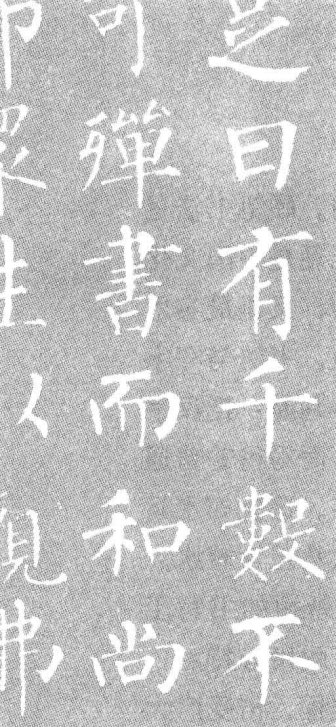 足日有千數不
可殫書而和尚
眾生以觀佛